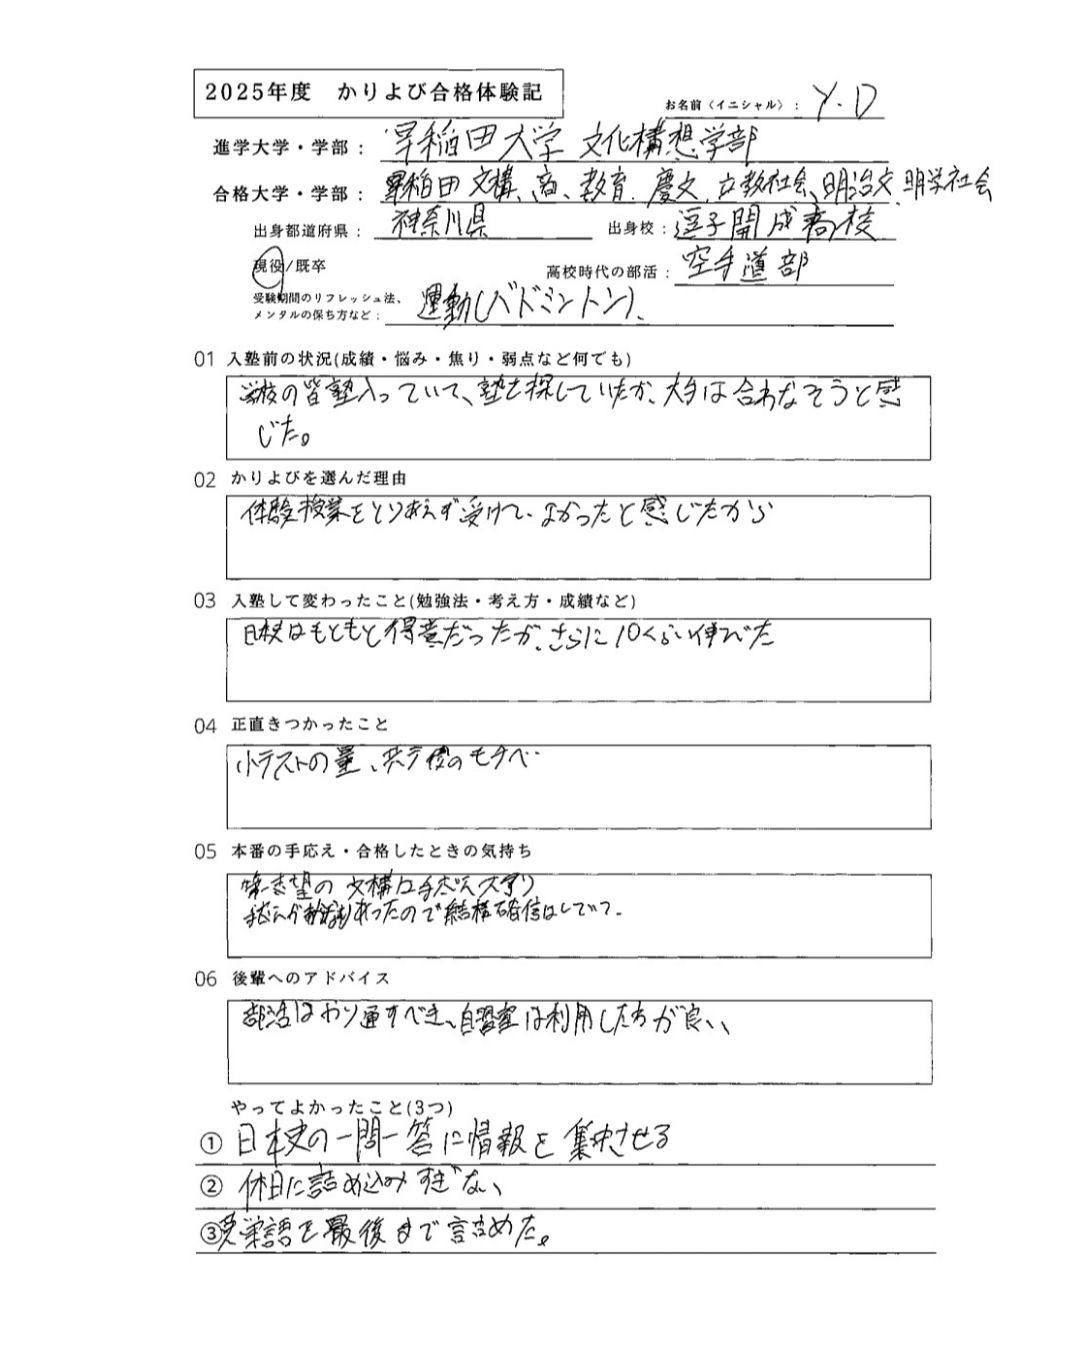 2025年度 かりよび合格体験記
お名前(イニシャル): Y.D
進学大学・学部: 早稲田大学 文化構想学部
合格大学・学部: 早稲田 文構、商、教育、慶文、立教社会、明治文、明学社会
出身都道府県: 神奈川県 出身校: 逗子開成高校
現役/既卒 高校時代の部活: 空手道部
受験期間のリフレッシュ法、
メンタルの保ち方など: 運動(バドミントン)、
01 入塾前の状況(成績・悩み・焦り・弱点など何でも)
学校の皆塾入っていて、塾を探していたが、大手は合わなそうと感
じた。
02 かりよびを選んだ理由
体験授業をとりあえず受けて、よかったと感じたから
03 入塾して変わったこと(勉強法・考え方・成績など)
日本史はもともと得意だったが、さらに10くらい伸びた
04 正直きつかったこと
小テストの量、共テ後のモチベ
05 本番の手応え・合格したときの気持ち
第一志望の 文構は手応え
あったので結構確信はしていた
06 後輩へのアドバイス
部活はやり通すべき、自習室は利用した方が良い、
やってよかったこと(3つ)
① 日本史の一問一答に情報を集中させる
② 休日に詰め込みすぎない
③ 英単語を最後まで詰めた。